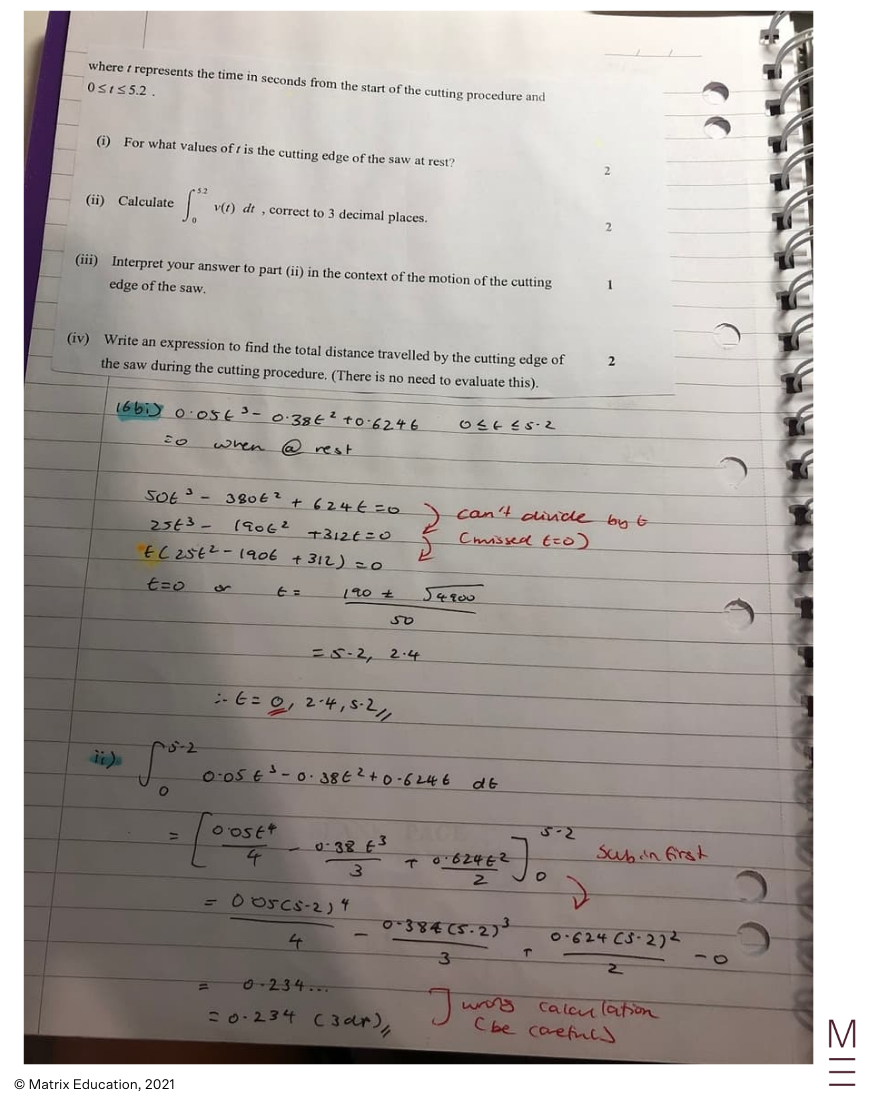 where t represents the time in seconds from the start of the cutting procedure and
0 ≤ t ≤ 5.2 .
(i) For what values of t is the cutting edge of the saw at rest? 2
(ii) Calculate ∫₀^5.2 v(t) dt , correct to 3 decimal places. 2
(iii) Interpret your answer to part (ii) in the context of the motion of the cutting 1
edge of the saw.
(iv) Write an expression to find the total distance travelled by the cutting edge of 2
the saw during the cutting procedure. (There is no need to evaluate this).
16bi) 0.05t³ - 0.38t² + 0.624t 0 ≤ t ≤ 5.2
=0 when @ rest
50t³ - 380t² + 624t = 0 can't divide by t
25t³ - 190t² + 312t = 0 (missed t=0)
t(25t² - 190t + 312) = 0
t=0 or t = (190 ± √4900)/50
= 5.2, 2.4
∴ t = 0, 2.4, 5.2 //
ii) ∫₀^5.2 0.05t³ - 0.38t² + 0.624t dt
= [0.05t⁴/4 - 0.38t³/3 + 0.624t²/2]₀^5.2 Sub in first
= 0.05(5.2)⁴/4 - 0.38(5.2)³/3 + 0.624(5.2)²/2 - 0
= 0.234...
= 0.234 (3dp) // ] wrong calculation
(be careful)
© Matrix Education, 2021
M